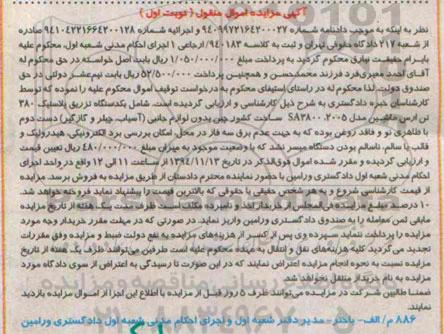 آگهی مزایده اموال منقول (نوبت اول)
نظر به اینکه به موجب دادنامه شماره ۹۴۰۹۹۷۲۱۶۴۲۰۰۰۲۷ و اجرائیه شماره ۹۴۱۰۴۲۲۱۶۶۴۲۰۰۱۲۸ صادره
از شعبه ۲۱۷ دادگاه حقوقی تهران و ثبت به کلاسه ۹۴۰۱۸۳ ارجاعی ۱ اجرای احکام مدنی شعبه اول، محکوم علیه
بایرام حقیقت بیارق محکوم گردید به پرداخت مبلغ ۱/۰۵۰/۰۰۰/۰۰۰ ریال بابت اصل خواسته در حق محکوم له
آقای احمد معیری فرد فرزند محمدحسن و همچنین پرداخت ۵۲/۵۰۰/۰۰۰ ریال بابت نیم عشر دولتی در حق
صندوق دولت. لذا محکوم له در راستای استیفای محکوم به درخواست توقیف اموال محکوم علیه را نموده که توسط
کارشناس خبره دادگستری به شرح ذیل کارشناسی و ارزیابی گردیده است. شامل یکدستگاه تزریق پلاستیک ۳۸۰
تن ارس ماشین مدل ۲۰۰۵ SA۳۸۰۰ ساخت کشور چین بدون لوازم جانبی (آسیاب، چیلر و گازگیر) دست دوم
با ظاهری نو و فاقد روغن بوده که به جهت عدم برق سه فاز در محل، امکان بررسی برد الکترونیکی، هیدرولیک و
قالب یا سالم، ناسالم بودن دستگاه میسر نشد که با وضعیت موجود به میزان مبلغ ۴۸۰/۰۰۰/۰۰۰ ریال تعیین قیمت
و ارزیابی گردیده و مقرر شده اموال فوق الذکر در تاریخ ۱۳۹۴/۱۱/۱۳ از ساعت ۱۱ الی ۱۲ واقع در واحد اجرای
احکام مدنی شعبه اول دادگستری ورامین با حضور نماینده محترم دادستان از طریق مزایده به فروش برسد. مزایده
از قیمت کارشناسی شروع و به هر شخص حقیقی یا حقوقی که بالاترین قیمت را پیشنهاد نماید فروخته خواهد شد.
۱۰ درصد مبلغ مزایده فی المجلس از خریدار اخذ و نامبرده مکلف است ظرف مهلت یک هفته از تاریخ مزایده
مابقی ثمن معامله را به صندوق دادگستری ورامین واریز نماید. در صورتی که در مهلت مقرر خریدار وجه مورد
مزایده را پرداخت ننماید سپرده وی پس از کسر از هزینه های مزایده به نفع دولت ضبط و مزایده وفق مقررات
تجدید می گردید کلیه هزینه های نقل و انتقال به عهده محکوم علیه است طرفین می توانند ظرف یک هفته از تاریخ
مزایده نسبت به نحوه انجام مزایده اعتراض نمایند که در این صورت تا رسیدگی به اعتراض از سوی دادگاه مورد
مزایده به نام خریدار منتقل نخواهد شد.
ضمنا طالبین شرکت در مزایده می توانند ظرف ۵ روز قبل از مزایده با اطلاع این اجرا از اموال مزایده بازدید
نمایند.
۸۸۶ م/الف- باختر- مدیر دفتر شعبه اول و اجرای احکام مدنی شعبه اول دادگستری ورامین